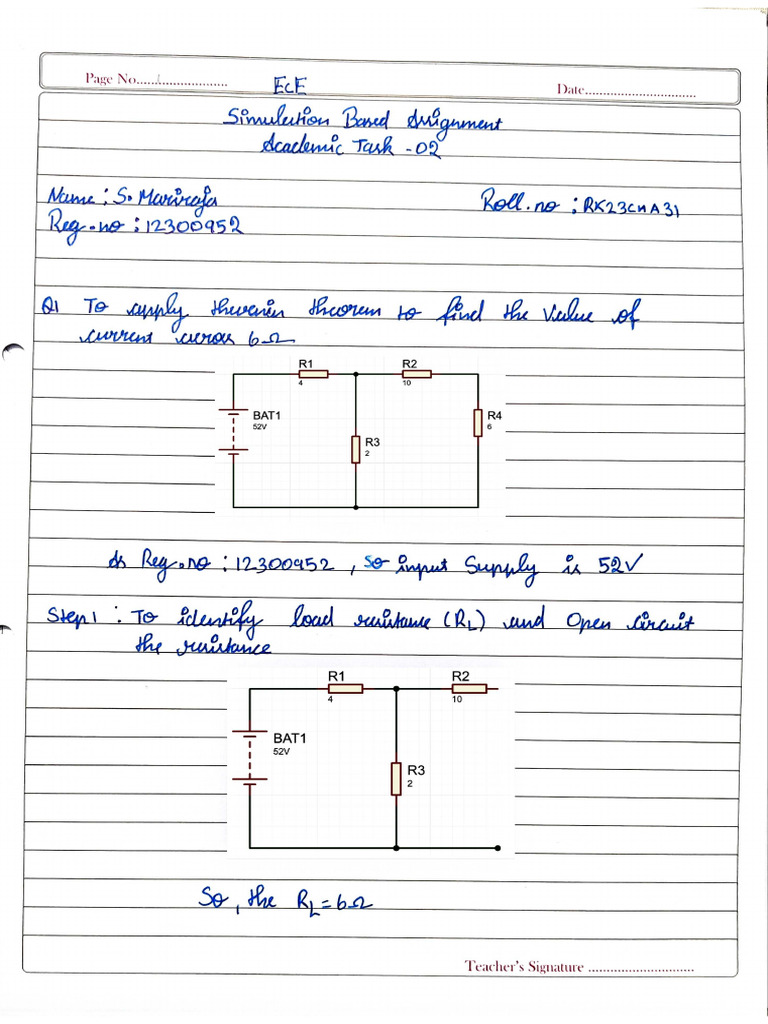 Page No.....1.....................
ECE
Date................................
Simulation Based Assignment
Academic Task - 02
Name : S. Mariraja
Roll. no : RK23CHA31
Reg. no : 12300952
Q1 To apply thevenin theorem to find the value of
current across 6Ω
R1
4
R2
10
BAT1
52V
R3
2
R4
6
As Reg. no : 12300952 , so input Supply is 52V
Step 1 : To identify load resistance (RL) and Open circuit
the resistance
R1
4
R2
10
BAT1
52V
R3
2
So, the RL = 6Ω
Teacher's Signature ..............................